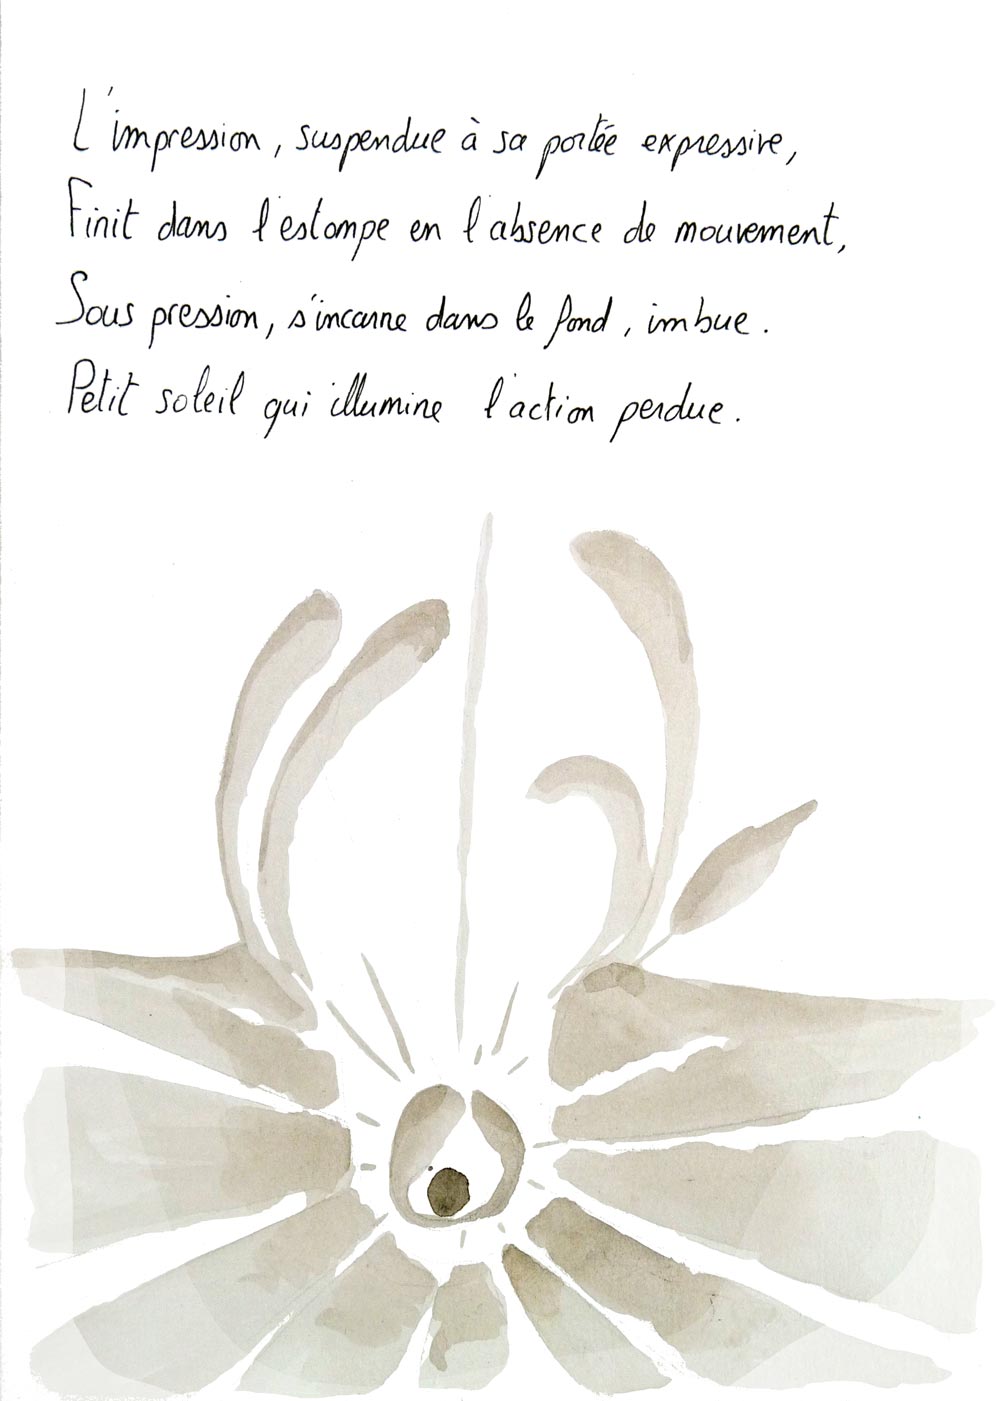 L'impression, suspendue à sa portée expressive,
Finit dans l'estompe en l'absence de mouvement,
Sous pression, s'incarne dans le fond, imbue.
Petit soleil qui illumine l'action perdue.